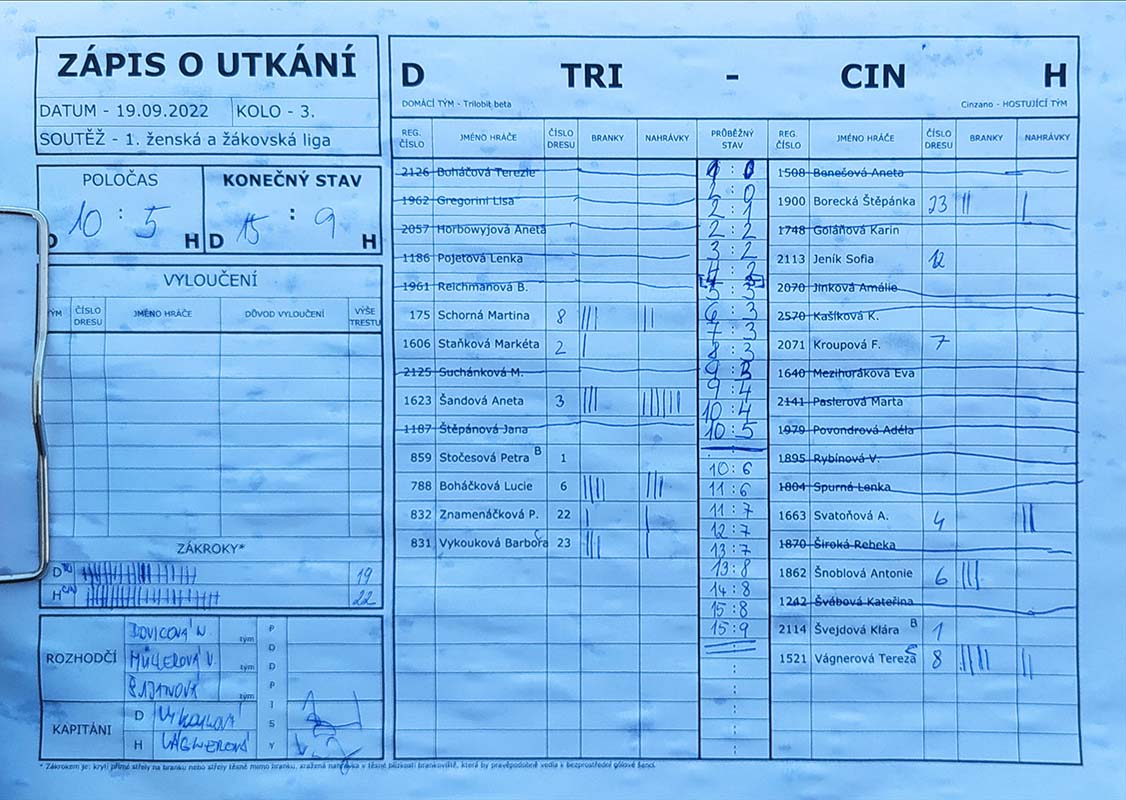 ZÁPIS O UTKÁNÍ
DATUM - 19.09.2022 KOLO - 3.
SOUTĚŽ - 1. ženská a žákovská liga
POLOČAS KONEČNÝ STAV
10 : 5 15 : 9
D H D H
VYLOUČENÍ
ČÍSLO DRESU JMÉNO HRÁČE DŮVOD VYLOUČENÍ VÝŠE TRESTU
ZÁKROKY*
D TRI 19
H CIN 22
ROZHODČÍ
tým
MÜLLEROVÁ V
tým
KAPITÁNI
D
H VÁGNEROVÁ
PODPISY
D TRI - CIN H
DOMÁCÍ TÝM - Trilobit beta Cinzano - HOSTUJÍCÍ TÝM
REG. ČÍSLO JMÉNO HRÁČE ČÍSLO DRESU BRANKY NAHRÁVKY PRŮBĚŽNÝ STAV REG. ČÍSLO JMÉNO HRÁČE ČÍSLO DRESU BRANKY NAHRÁVKY
2126 Boháčová Terezie
1962 Gregorini Lisa
2057 Horbowyjová Aneta
1186 Pojetová Lenka
1961 Reichmanová B.
175 Schorná Martina 8 ||| ||
1606 Staňková Markéta 2 |
2125 Suchánková M.
1623 Šandová Aneta 3 ||| ||||||
1187 Štěpánová Jana
859 Stočesová Petra B 1
788 Boháčková Lucie 6 |||| |||
832 Znamenáčková P. 22 | |
831 Vykouková Barbora 23 ||| |
1 : 0
2 : 0
2 : 1
2 : 2
3 : 2
4 : 2
5 : 3
6 : 3
7 : 3
8 : 3
9 : 3
9 : 4
10 : 4
10 : 5
10 : 6
11 : 6
11 : 7
12 : 7
13 : 7
13 : 8
14 : 8
15 : 8
15 : 9
1508 Benešová Aneta
1900 Borecká Štěpánka 23 || |
1748 Goláňová Karin
2113 Jeník Sofia 12
2070 Jinková Amálie
2570 Kašíková K.
2071 Kroupová F. 7
1640 Mezihoráková Eva
2141 Paslerová Marta
1979 Povondrová Adéla
1895 Rybínová V.
1804 Spurná Lenka
1663 Svatoňová A. 4 ||
1870 Široká Rebeka
1862 Šnoblová Antonie 6 |||
1242 Švábová Kateřina
2114 Švejdová Klára B 1
1521 Vágnerová Tereza 8 |||| ||